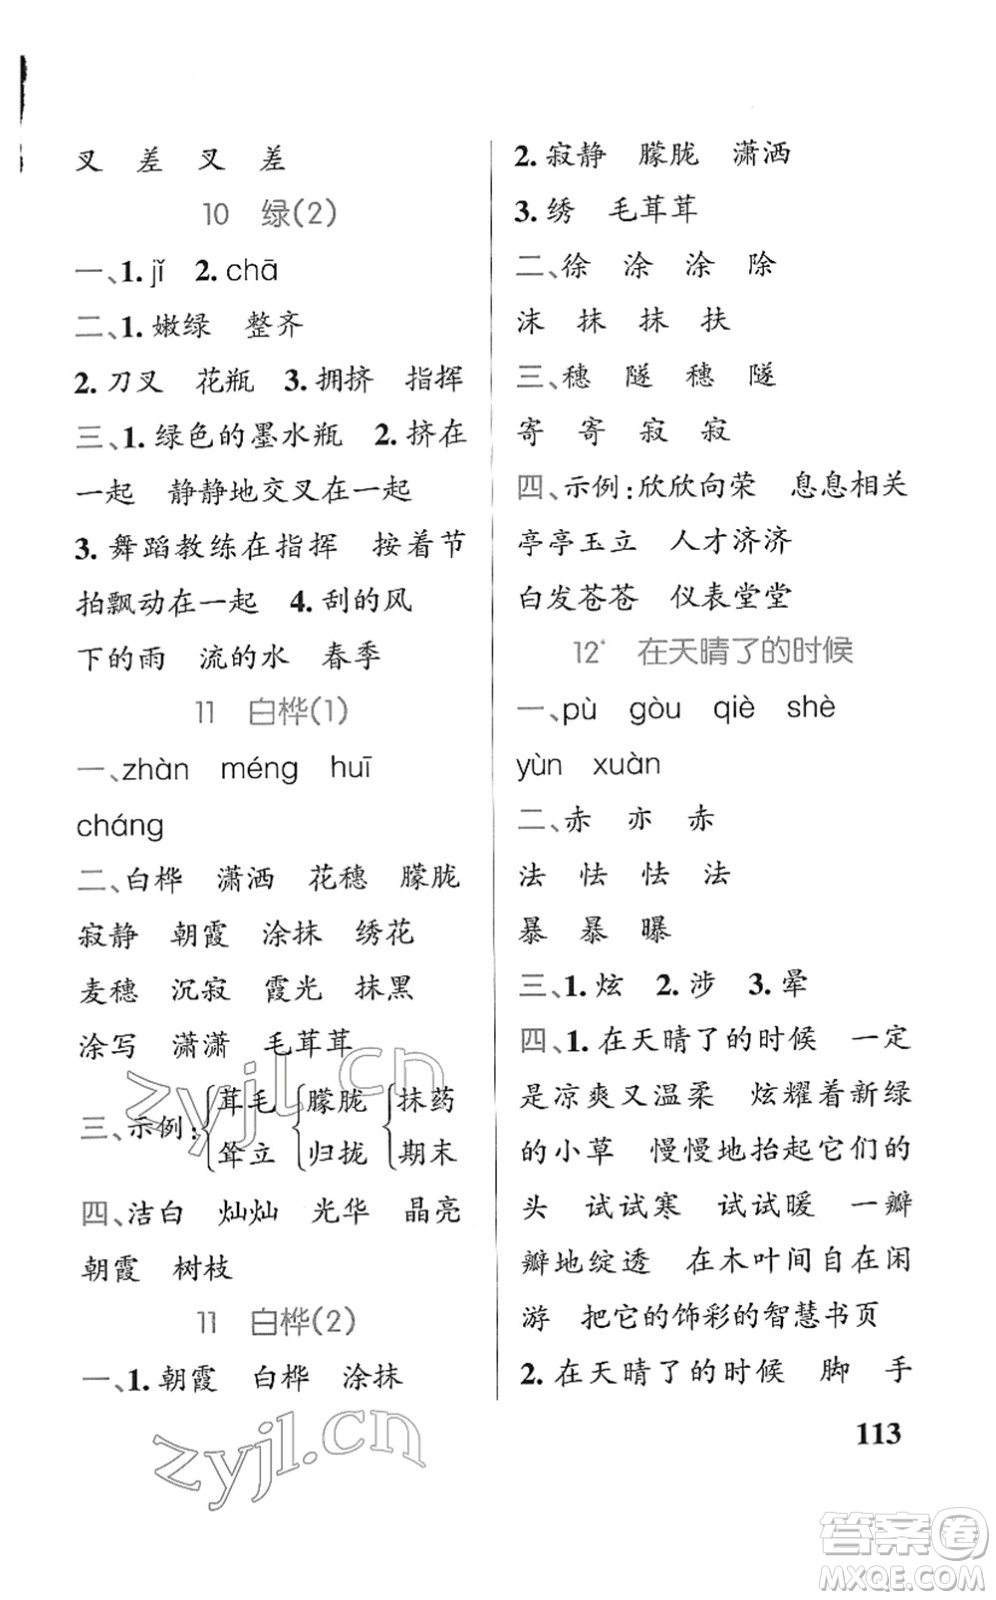 叉 差 叉 差
10 绿(2)
一、1. jǐ 2. chā
二、1. 嫩绿 整齐
2. 刀叉 花瓶 3. 拥挤 指挥
三、1. 绿色的墨水瓶 2. 挤在
一起 静静地交叉在一起
3. 舞蹈教练在指挥 按着节
拍飘动在一起 4. 刮的风
下的雨 流的水 春季
11 白桦(1)
一、zhàn méng huī
cháng
二、白桦 潇洒 花穗 朦胧
寂静 朝霞 涂抹 绣花
麦穗 沉寂 霞光 抹黑
涂写 潇潇 毛茸茸
三、示例: 茸毛 朦胧 抹药
耸立 归拢 期末
四、洁白 灿灿 光华 晶亮
朝霞 树枝
11 白桦(2)
一、1. 朝霞 白桦 涂抹
2. 寂静 朦胧 潇洒
3. 绣 毛茸茸
二、徐 涂 涂 除
沫 抹 抹 扶
三、穗 隧 穗 隧
寄 寄 寂 寂
四、示例:欣欣向荣 息息相关
亭亭玉立 人才济济
白发苍苍 仪表堂堂
12* 在天晴了的时候
一、pù gòu qiè shè
yùn xuàn
二、赤 亦 赤
法 怯 怯 法
暴 暴 曝
三、1. 炫 2. 涉 3. 晕
四、1. 在天晴了的时候 一定
是凉爽又温柔 炫耀着新绿
的小草 慢慢地抬起它们的
头 试试寒 试试暖 一瓣
瓣地绽透 在木叶间自在闲
游 把它的饰彩的智慧书页
2. 在天晴了的时候 脚 手
113
zyjl.cn
zyjl.cn
答案卷
MXQE.COM